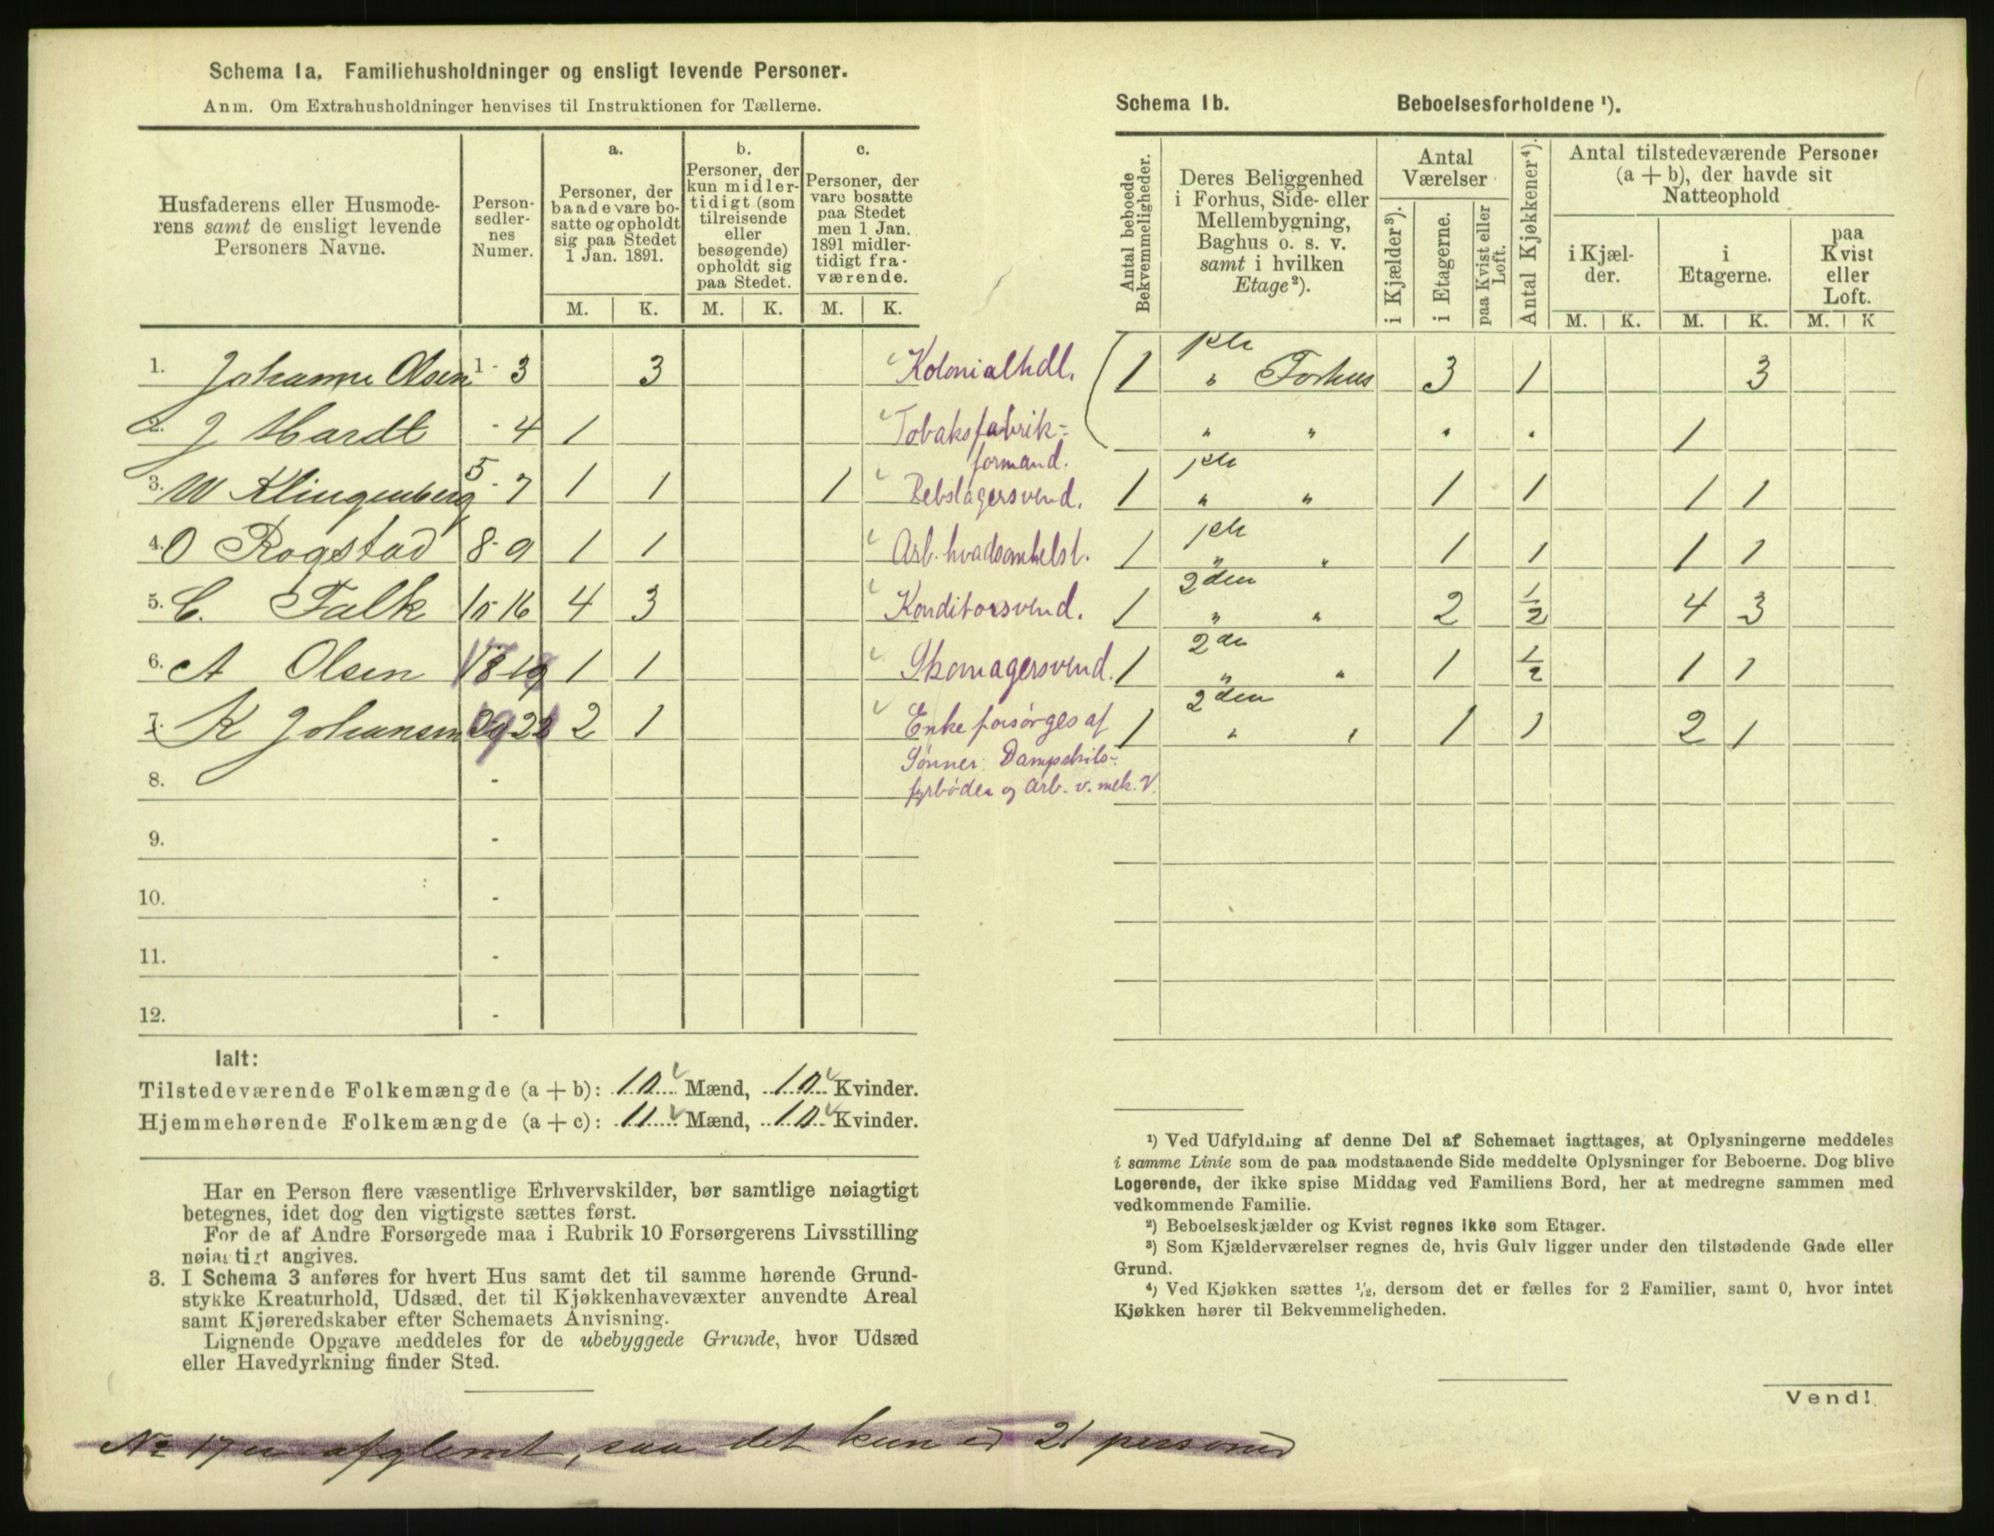 Schema 1a. Familiehusholdninger og ensligt levende Personer.
Anm. Om Extrahusholdninger henvises til Instruktionen for Tællerne.
Husfaderens eller Husmode-
rens samt de ensligt levende
Personers Navne.
Person-
sedler-
nes
Numer.
a.
Personer, der
baade vare bo-
satte og opholdt
sig paa Stedet
1 Jan. 1891.
b.
Personer, der
kun midler-
tidigt (som
tilreisende
eller
besøgende)
opholdt sig
paa Stedet.
c.
Personer, der
vare bosatte
paa Stedet
men 1 Jan.
1891 midler-
tidigt fra-
værende.
M. K. M. K. M. K.
1. Johanne Olsen 1-3 3 Kolonialhdl.
2. J Hardt - 4 1 Tobaksfabrik-
formand.
3. W Klingenberg 5-7 1 1 1 Rebslagersvend.
4. O Rogstad 8-9 1 1 Arb. hvadsomhelst.
5. C. Falk 10 16 4 3 Konditorsvend.
6. A Olsen 1 1 Skomagersvend.
7. K Johansen 2 1 Enke forsørges af
Sønner: Dampskibs-
fyrbøder og Arb. v. mek. V.
8. -
9. -
10. -
11. -
12. -
Ialt:
Tilstedeværende Folkemængde (a + b): 10 Mænd, 10 Kvinder.
Hjemmehørende Folkemængde (a + c): 11 Mænd, 10 Kvinder.
Har en Person flere væsentlige Erhvervskilder, bør samtlige nøiagtigt
betegnes, idet dog den vigtigste sættes først.
For de af Andre Forsørgede maa i Rubrik 10 Forsørgerens Livsstilling
nøiagtigt angives.
3. I Schema 3 anføres for hvert Hus samt det til samme hørende Grund-
stykke Kreaturhold, Udsæd, det til Kjøkkenhavevæxter anvendte Areal
samt Kjøreredskaber efter Schemaets Anvisning.
Lignende Opgave meddeles for de ubebyggede Grunde, hvor Udsæd
eller Havedyrkning finder Sted.
Schema 1b. Beboelsesforholdene ¹).
Antal beboede
Bekvemmeligheder.
Deres Beliggenhed
i Forhus, Side- eller
Mellembygning,
Baghus o. s. v.
samt i hvilken
Etage²).
Antal
Værelser
i Kjælder³).
i Etagerne.
paa Kvist eller
Loft.
Antal Kjøkkener⁴).
Antal tilstedeværende Personer
(a + b), der havde sit
Natteophold
i Kjæl-
der.
i
Etagerne.
paa
Kvist
eller
Loft.
M. K. M. K. M. K
1 " Forhus 3 1 3
" " " " 1
1 " " 1 1 1 1
1 " " 1 1 1 1
2den
1 " " 2 1/2 4 3
2den
1 " " 1 1/2 1 1
2den
1 " " 1 1 2 1
¹) Ved Udfyldning af denne Del af Schemaet iagttages, at Oplysningerne meddeles
i samme Linie som de paa modstaaende Side meddelte Oplysninger for Beboerne. Dog blive
Logerende, der ikke spise Middag ved Familiens Bord, her at medregne sammen med
vedkommende Familie.
²) Beboelseskjælder og Kvist regnes ikke som Etager.
³) Som Kjælderværelser regnes de, hvis Gulv ligger under den tilstødende Gade eller
Grund.
⁴) Ved Kjøkken sættes ½, dersom det er fælles for 2 Familier, samt 0, hvor intet
Kjøkken hører til Bekvemmeligheden.
Vend!
No 17 er afglemt, saa det kun er 21 personer